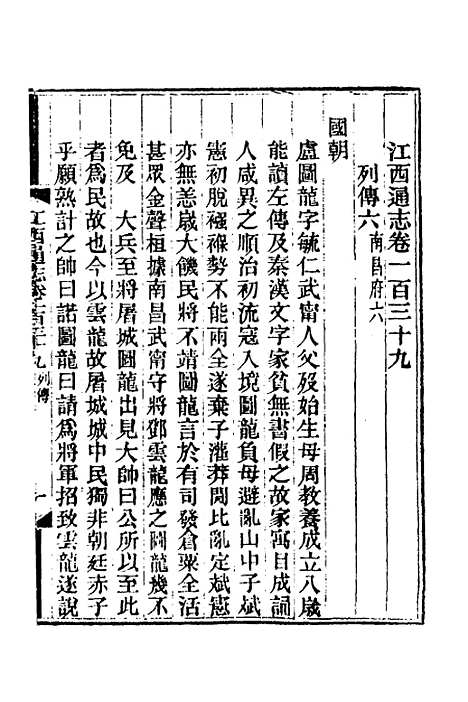 江西通志卷一百三十九
列傳六南昌府六
國朝
盧圖龍字毓仁武甯人父歿始生母周教養成立八歲
能讀左傳及秦漢文字家貧無書假之故家寓目成誦
人咸異之順治初流寇入境圖龍負母避亂山中子斌
憲初脫襁褓勢不能兩全遂棄子灌莽間比亂定斌憲
亦無恙歲大饑民將不靖圖龍言於有司發倉粟全活
甚眾金聲桓據南昌武甯守將鄧雲龍應之圖龍幾不
免及　大兵至將屠城圖龍出見大帥曰公所以至此
者為民故也今以雲龍故屠城城中民獨非朝廷赤子
乎願熟計之帥曰諾圖龍曰請為將軍招致雲龍遂說
江西通志卷一百三十九列傳
一